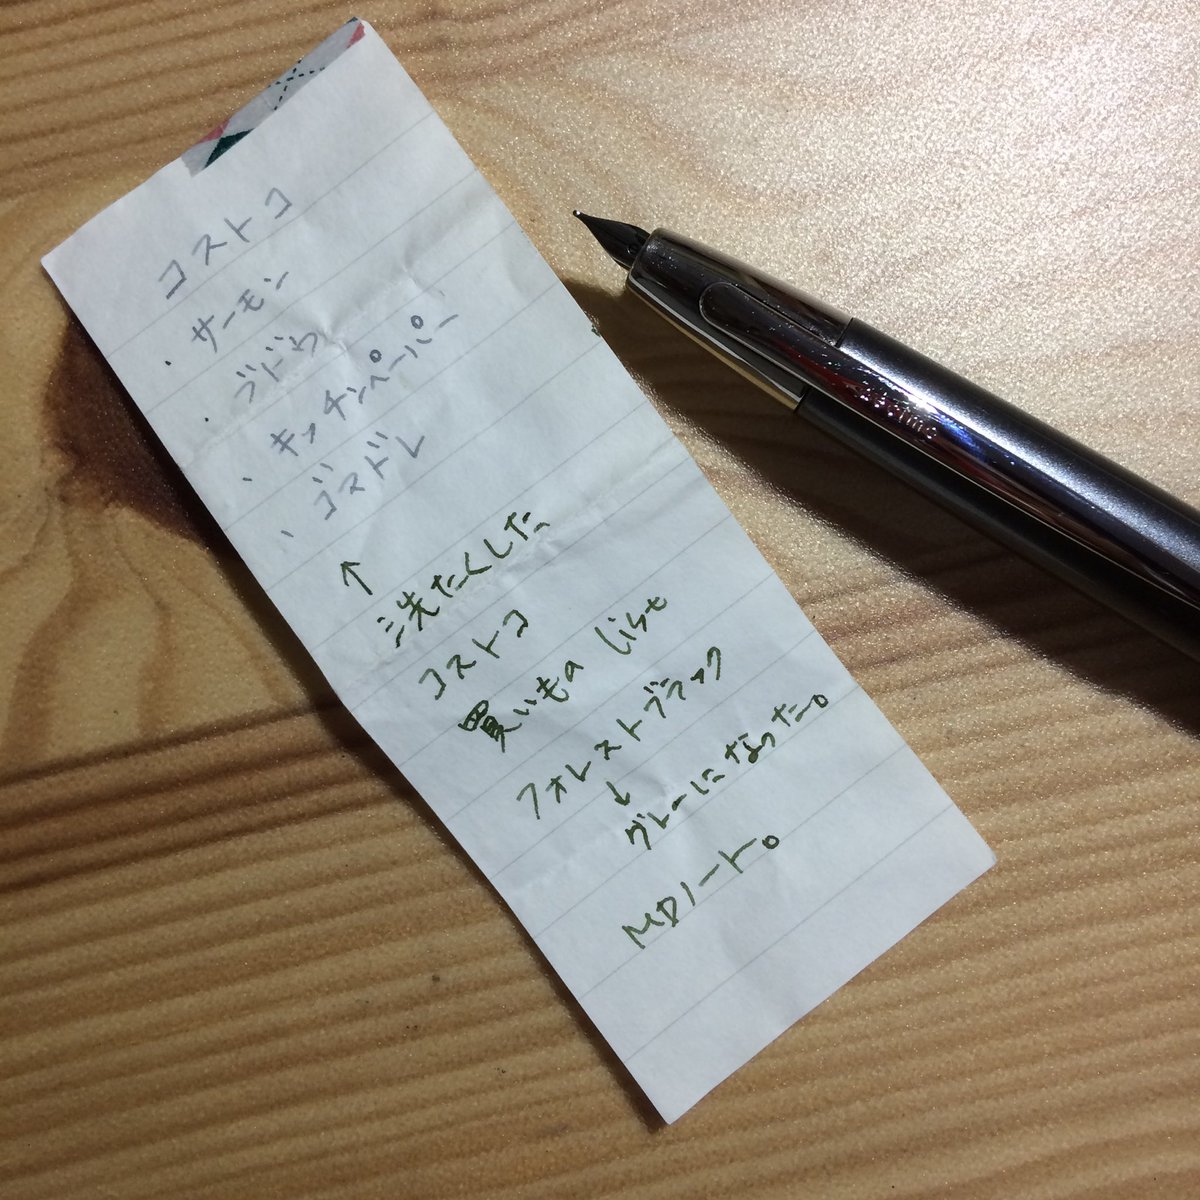 コストコ
・サーモン
・ブドウ
・キッチンペーパー
・ゴスドレ
↑
洗たくした
コストコ
買いもの list
フォレストブラック
↓
グレーになった。
MDノート。
décimo